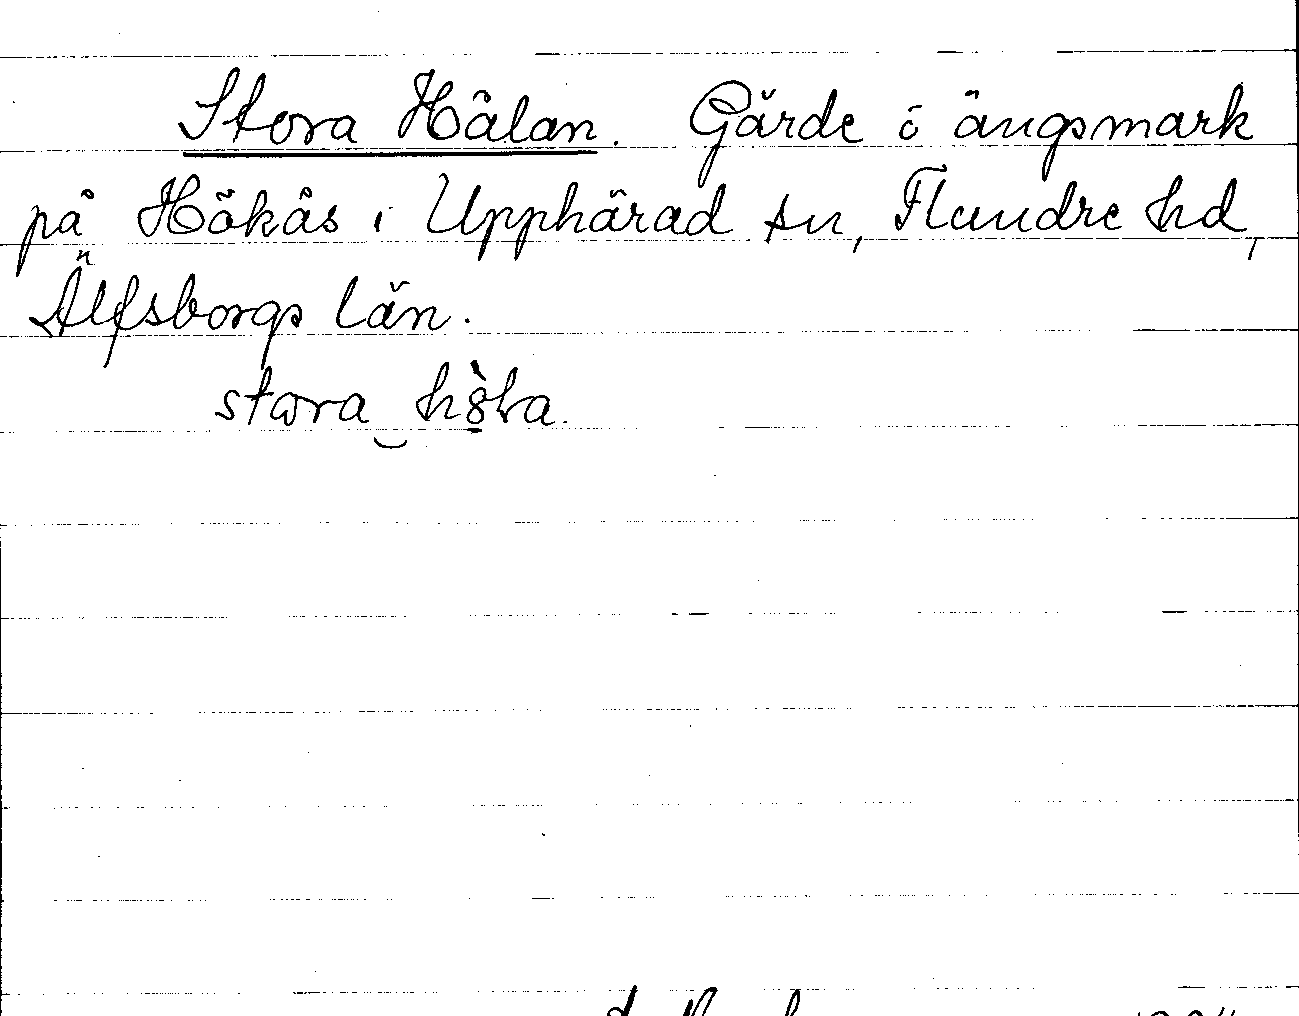 Stora Hålan. Gärde i ängsmark
på Hökås i Upphärad sn, Flundre hd,
Älfsborgs län.